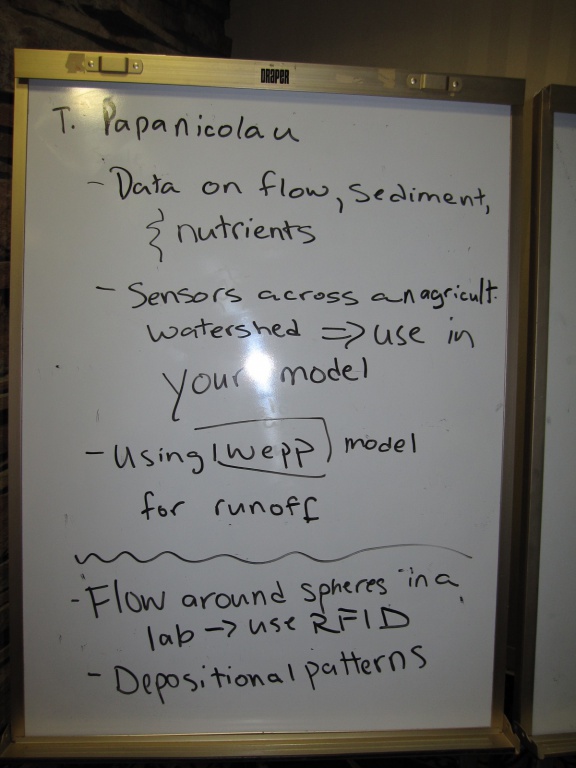 DRAPER
T. Papanicolau
- Data on flow, sediment,
& nutrients
- Sensors across an agricult.
watershed ⇒ use in
your model
- Using wepp model
for runoff
- Flow around spheres in a
lab → use RFID
- Depositional patterns